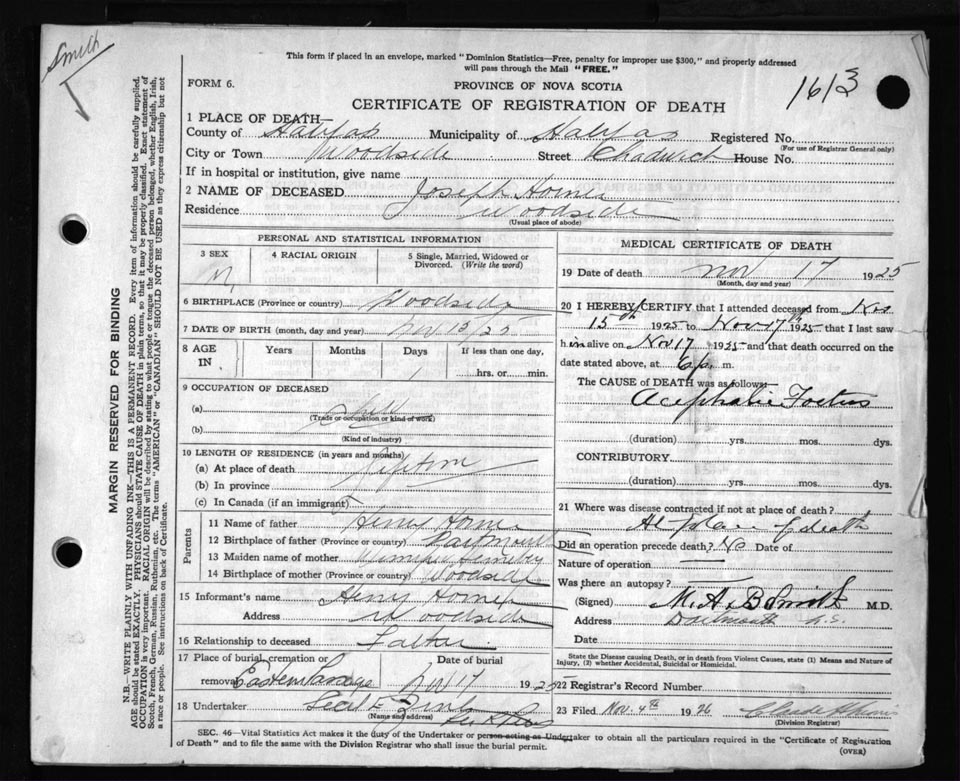 Smith
This form if placed in an envelope, marked "Dominion Statistics—Free, penalty for improper use $300," and properly addressed
will pass through the Mail "FREE."
FORM 6.
PROVINCE OF NOVA SCOTIA
1613
CERTIFICATE OF REGISTRATION OF DEATH
1 PLACE OF DEATH—
County of Halifax Municipality of Halifax Registered No.
(For use of Registrar General only)
City or Town Woodside Street Chadwick House No.
If in hospital or institution, give name
2 NAME OF DECEASED Joseph Horne
Residence Woodside
(Usual place of abode)
PERSONAL AND STATISTICAL INFORMATION
3 SEX 4 RACIAL ORIGIN 5 Single, Married, Widowed or
Divorced. (Write the word)
M
6 BIRTHPLACE (Province or country) Woodside
7 DATE OF BIRTH (month, day and year) Nov 15/25
8 AGE IN Years Months Days If less than one day,
1 hrs. or min.
9 OCCUPATION OF DECEASED
(a)
(Trade or occupation or kind of work)
(b)
(Kind of industry)
10 LENGTH OF RESIDENCE (in years and months)
(a) At place of death Lifetime
(b) In province
(c) In Canada (if an immigrant)
Parents
11 Name of father Henry Horne
12 Birthplace of father (Province or country) Dartmouth
13 Maiden name of mother
14 Birthplace of mother (Province or country) Woodside
15 Informant's name Henry Horne
Address Woodside
16 Relationship to deceased Father
17 Place of burial, cremation or Date of burial
removal Eastern Passage Nov 17 1925
18 Undertaker Cecil E Zink
(Name and address)
MEDICAL CERTIFICATE OF DEATH
19 Date of death Nov 17 1925
(Month, day and year)
20 I HEREBY CERTIFY that I attended deceased from Nov
15th 1925 to Nov 17th 1925 that I last saw
him alive on Nov 17 1925 and that death occurred on the
date stated above, at 6 p. m.
The CAUSE of DEATH was as follows:
Acephalic Foetus
(duration) yrs. mos. dys.
CONTRIBUTORY
(duration) yrs. mos. dys.
21 Where was disease contracted if not at place of death?
At place of death
Did an operation precede death? No Date of
Nature of operation —
Was there an autopsy?
(Signed) M.A.B. Smith M.D.
Address Dartmouth N.S.
Date
State the Disease causing Death, or in death from Violent Causes, state (1) Means and Nature of
Injury, (2) whether Accidental, Suicidal or Homicidal.
22 Registrar's Record Number
23 Filed Nov. 4th 1926
(Division Registrar)
SEC. 46—Vital Statistics Act makes it the duty of the Undertaker or person acting as Undertaker to obtain all the particulars required in the "Certificate of Registration
of Death" and to file the same with the Division Registrar who shall issue the burial permit.
(OVER)
MARGIN RESERVED FOR BINDING
N.B.—WRITE PLAINLY WITH UNFADING INK—THIS IS A PERMANENT RECORD. Every item of information should be carefully supplied.
AGE should be stated EXACTLY. PHYSICIANS should STATE CAUSE OF DEATH in plain terms, so that it may be properly classified. Exact statement of
OCCUPATION is very important. RACIAL ORIGIN will be described by stating to what people or tongue the deceased person belonged, whether English, Irish,
Scotch, French, German, Russian, Ruthenian, etc. The terms "AMERICAN" or "CANADIAN" SHOULD NOT BE USED as they express citizenship but not
a race or people. See instructions on back of Certificate.